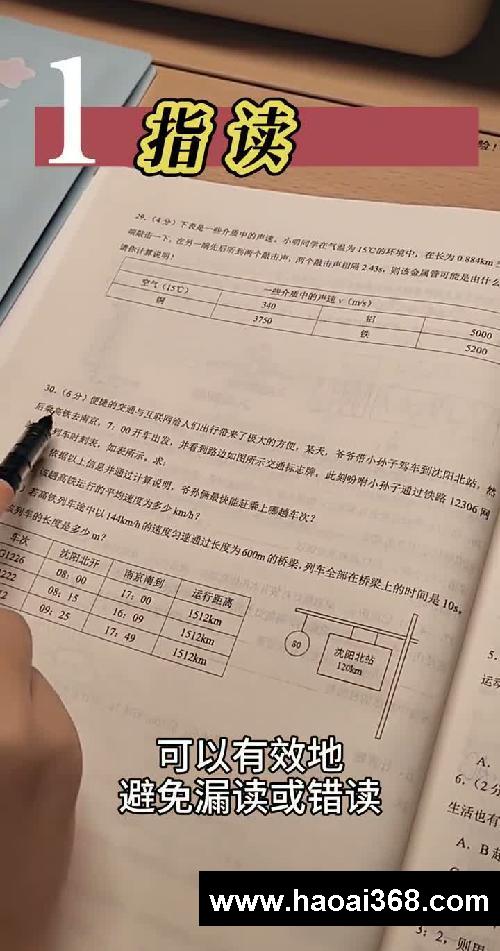 1
指读
验！
29.（4分）下表是一些介质中的声速，小明同学在气温为15℃的环境中，在长为0.884km
端敲击一下，在另一端先后听到两个敲击声，两个敲击声相隔2.43s，则该金属管可能是由什么
请你计算说明！
一些介质中的声速 v（m/s）
空气（15℃） 340 铝 5000
铜 3750 铁 5200
30.（6分）便捷的交通与互联网给人们出行带来了极大的方便，某天，爷爷带小孙子驾车到沈阳北站，然
后乘高铁去南京，7：00开车出发，并看到路边如图所示交通标志牌，此刻吩咐小孙子通过铁路12306网
列车时刻表，如表所示。求：
依据以上信息并通过计算说明，爷孙俩最快能赶乘上哪趟车次？
该趟高铁运行的平均速度为多少km/h？
若高铁列车途中以144km/h的速度匀速通过长度为600m的桥梁，列车全部在桥梁上的时间是10s，
该列车的长度是多少m？
车次 沈阳北开 南京南到 运行距离
G1226 08：00 17：00 1512km
222 08：15 16：09 1512km
2 09：25 17：49 1512km
80
沈阳北站
120km
5.
运动
A.
6.（2分
生活也有
A．B超
3：2，则用
可以有效地
避免漏读或错读
www.haoai368.com